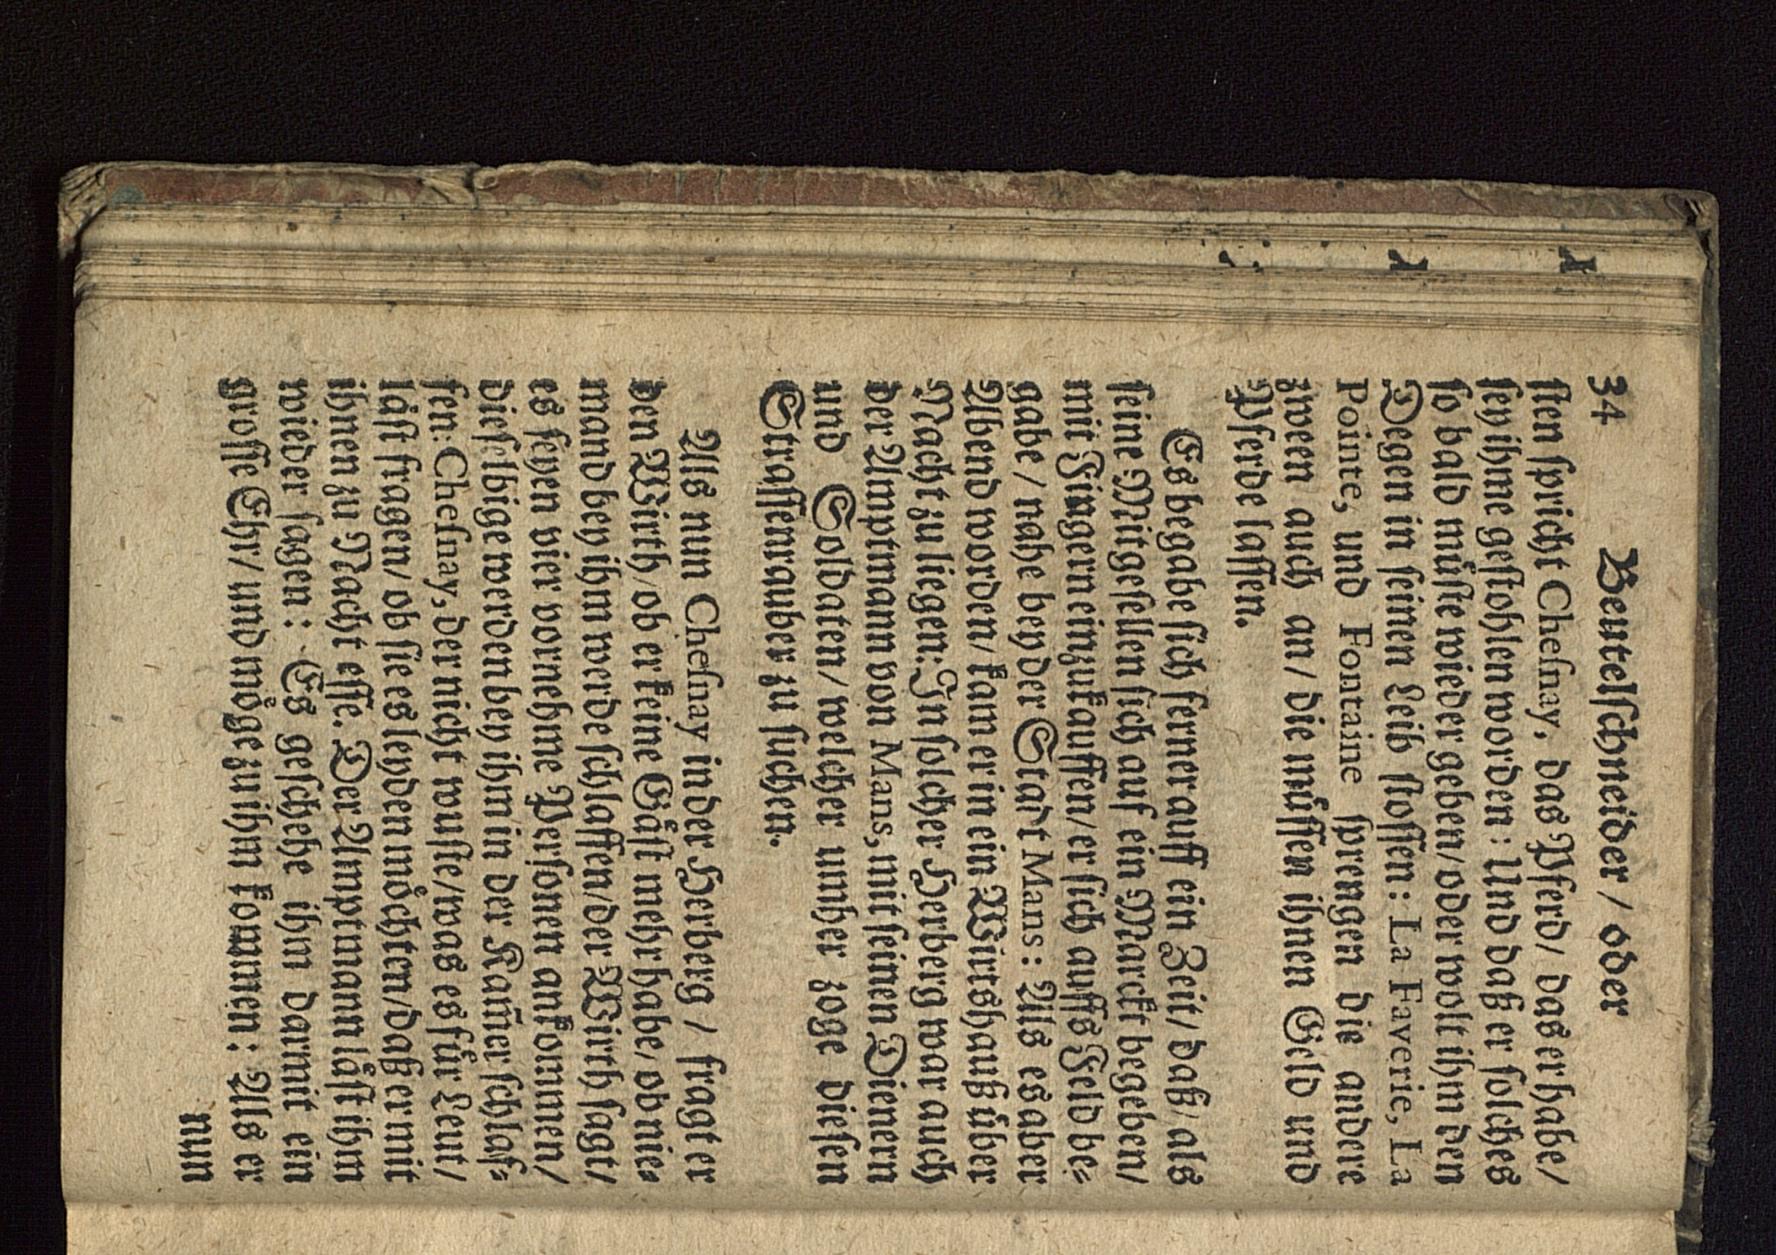 34 Beutelſchneider / oder
ſten ſpricht Cheſnay, das Pferd / das er habe /
ſey ihme geſtohlen worden: Und daß er ſolches
ſo bald muͤſte wieder geben / oder wolt ihm den
Degen in ſeinen Leib ſtoſſen: La Faverie, La
Pointe, und Fontaine ſprengen die andere
zween auch an / die muͤſſen ihnen Geld und
Pferde laſſen.
Es begabe ſich ferner auff ein Zeit / daß / als
ſeine Mitgeſellen ſich auf ein Marckt begeben /
mit Fingern einzukauffen / er ſich auffs Feld be⸗
gabe / nahe bey der Stadt Mans: Als es aber
Abend worden / kam er in ein Wirtshauß uͤber
Nacht zu liegen: In ſolcher Herberg war auch
der Amptmann von Mans, mit ſeinen Dienern
und Soldaten / welcher umher zoge dieſen
Straſſenrauber zu ſuchen.
Als nun Cheſnay in der Herberg / fragt er
den Wirth / ob er keine Gaͤſt mehr habe / ob nie⸗
mand bey ihm werde ſchlaffen / der Wirth ſagt /
es ſeyen vier vornehme Perſonen ankommen /
dieſelbige werden bey ihm in der Kam̃er ſchlaf⸗
fen: Cheſnay, der nicht wuſte / was es fuͤr Leut /
laͤſt fragen / ob ſie es leyden moͤchten / daß er mit
ihnen zu Nacht eſſe. Der Amptmann laͤſt ihm
wieder ſagen: Es geſchehe ihm darmit ein
groſſe Ehr / und moͤge zu ihm kommen: Als er
nun